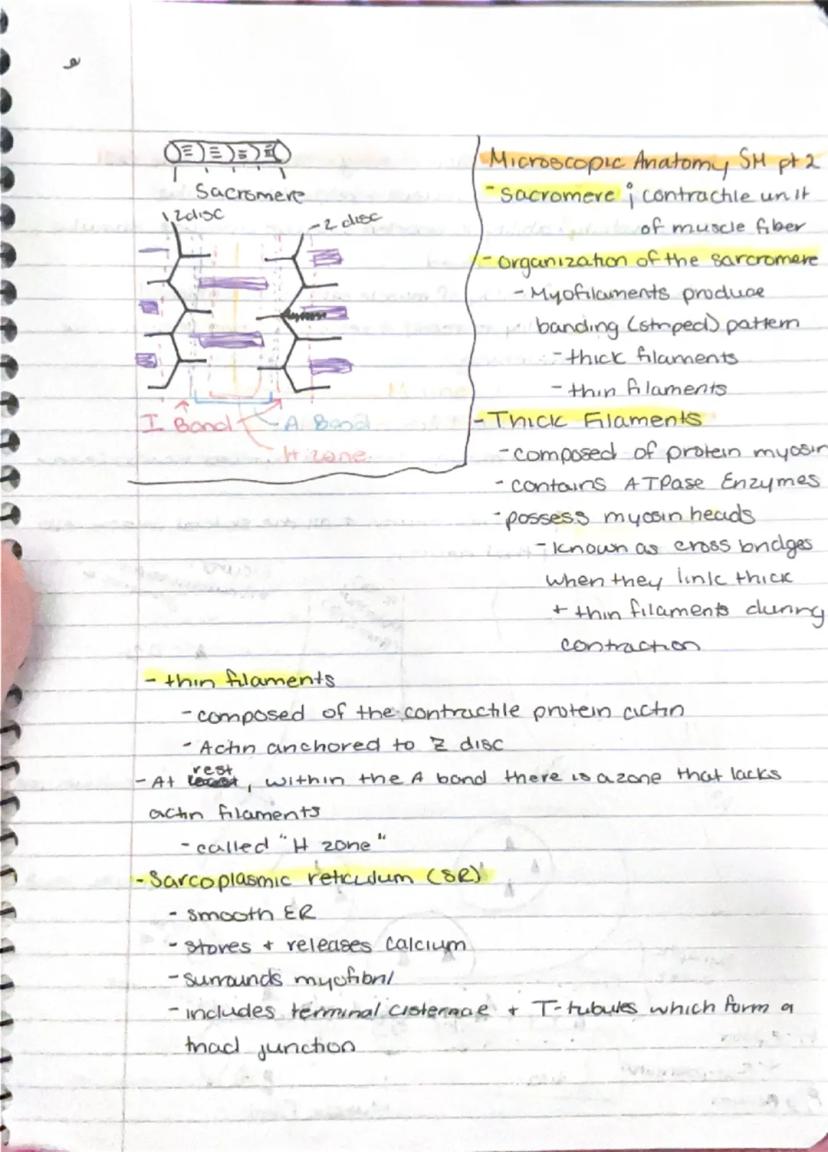 Sacromere
Z disc
Z disc
I Band
A Band
H zone
Microscopic Anatomy SM pt 2
- Sacromere ; contractile unit
of muscle fiber
- organization of the sarcromere
- Myofilaments produce
banding (striped) pattern
- thick filaments
- thin filaments
- Thick Filaments
- composed of protein myosin
- contains ATPase Enzymes
- possess myosin heads
- known as cross bridges
when they link thick
+ thin filaments during
contraction
- thin filaments
- composed of the contractile protein actin
- Actin anchored to Z disc
- At rest, within the A band there is a zone that lacks
actin filaments
- called "H zone"
- Sarcoplasmic reticulum (SR)
- smooth ER
- stores + releases calcium
- surrounds myofibril
- includes terminal cisternae + T-tubules which form a
triad junction